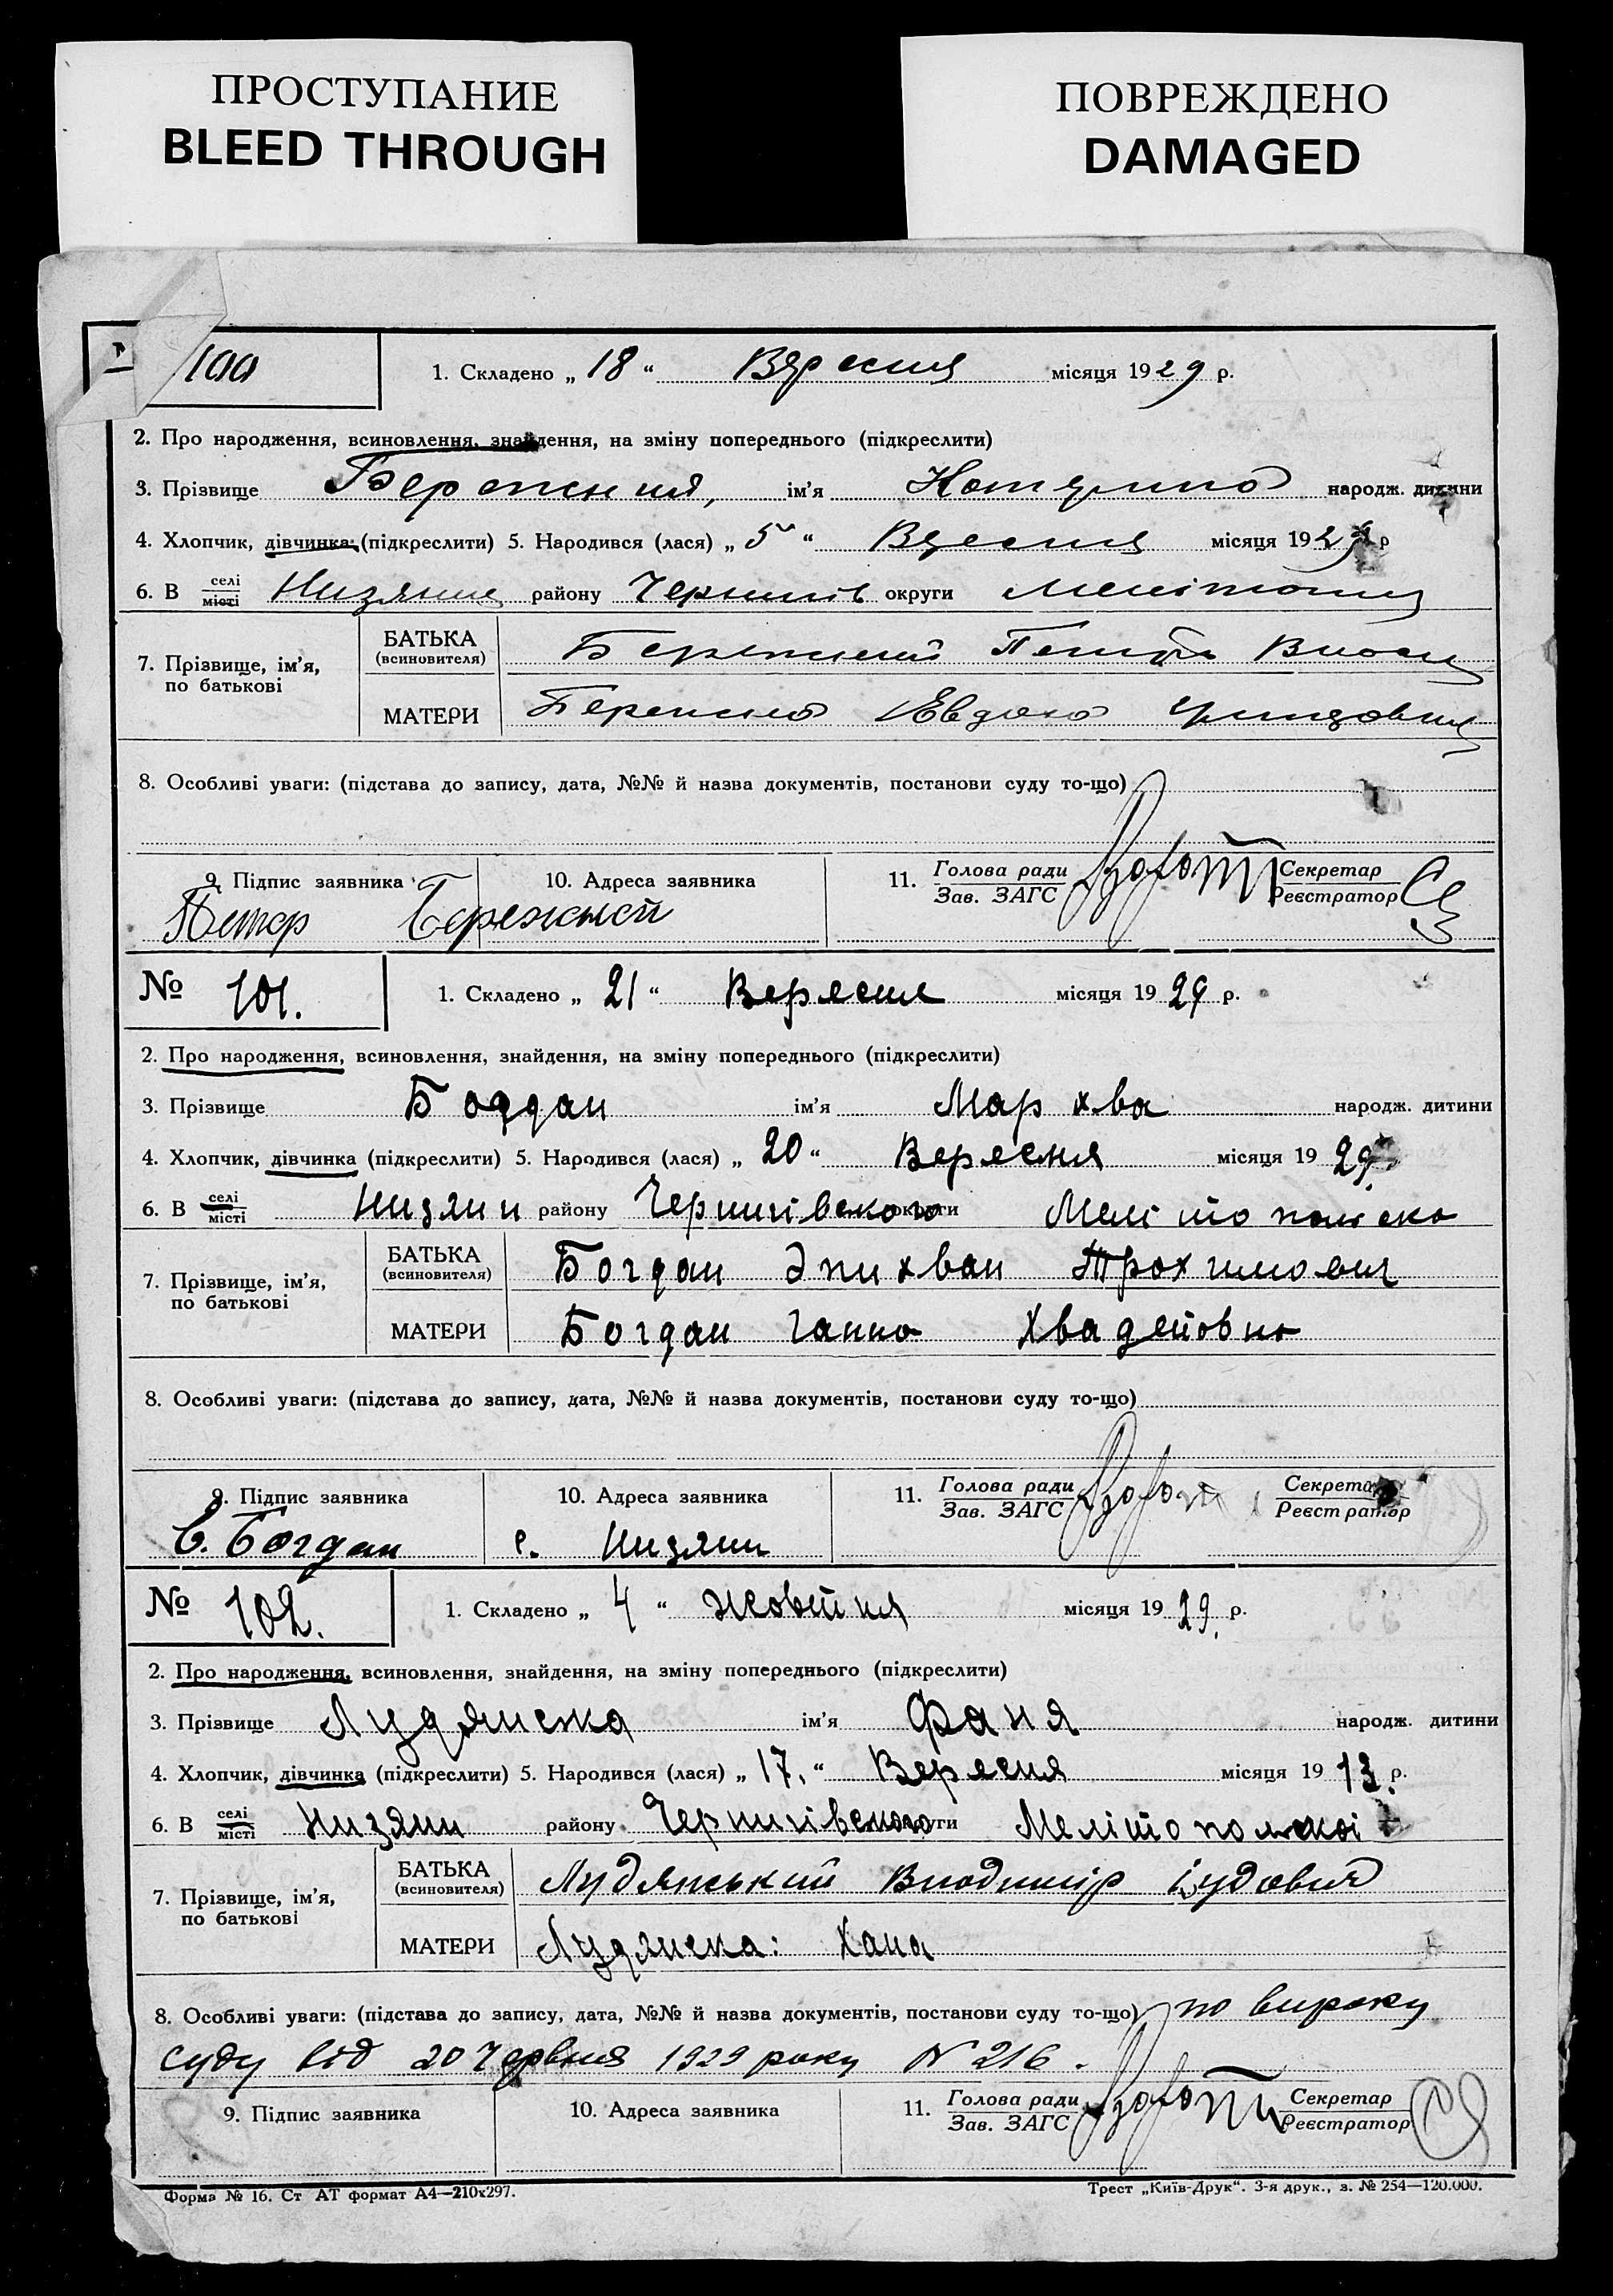 ПРОСТУПАНИЕ
BLEED THROUGH
ПОВРЕЖДЕНО
DAMAGED
100 1. Складено „ 18 “ Вересня місяця 1929 р.
2. Про народження, всиновлення, знайдення, на зміну попереднього (підкреслити)
3. Прізвище Бережния, ім’я Катерина народж. дитини
4. Хлопчик, дівчинка (підкреслити) 5. Народився (лася) „ 5 “ Вересня місяця 1929 р
6. В селі місті Низяни району Чернигів округи Мелітопол
7. Прізвище, ім’я, по батькові
БАТЬКА (всиновителя) Бережний Петро
МАТЕРИ Бережна Евдокія
8. Особливі уваги: (підстава до запису, дата, №№ й назва документів, постанови суду то-що)
9. Підпис заявника 10. Адреса заявника 11. Голова ради Зав. ЗАГС Секретар Реєстратор
Петр Бережной
№ 101. 1. Складено „ 21 “ Вересня місяця 1929 р.
2. Про народження, всиновлення, знайдення, на зміну попереднього (підкреслити)
3. Прізвище Богдан ім’я Мархва народж. дитини
4. Хлопчик, дівчинка (підкреслити) 5. Народився (лася) „ 20 “ Вересня місяця 1929
6. В селі місті Низяни району Чернигівского округи Мелітопольско
7. Прізвище, ім’я, по батькові
БАТЬКА (всиновителя) Богдан Эпихван Трохимович
МАТЕРИ Богдан Ганна Хвадейовна
8. Особливі уваги: (підстава до запису, дата, №№ й назва документів, постанови суду то-що)
9. Підпис заявника 10. Адреса заявника 11. Голова ради Зав. ЗАГС Секретар Реєстратор
Богдан с. Низяни
№ 102. 1. Складено „ 4 “ жовтня місяця 1929. р.
2. Про народження, всиновлення, знайдення, на зміну попереднього (підкреслити)
3. Прізвище Лудянска ім’я Фаня народж. дитини
4. Хлопчик, дівчинка (підкреслити) 5. Народився (лася) „ 17. “ Вересня місяця 1913. р.
6. В селі місті Низяни району Чернигівского округи Мелітопольскоі
7. Прізвище, ім’я, по батькові
БАТЬКА (всиновителя) Лудянський Володимір Іудович
МАТЕРИ Лудянска: Хана
8. Особливі уваги: (підстава до запису, дата, №№ й назва документів, постанови суду то-що) по вироку
суду від 20 Червня 1929 року № 216.
9. Підпис заявника 10. Адреса заявника 11. Голова ради Зав. ЗАГС Секретар Реєстратор
Форма № 16. Ст АТ формат А4—210х297. Трест „Київ-Друк“. 3-я друк., з. № 254—120.000.